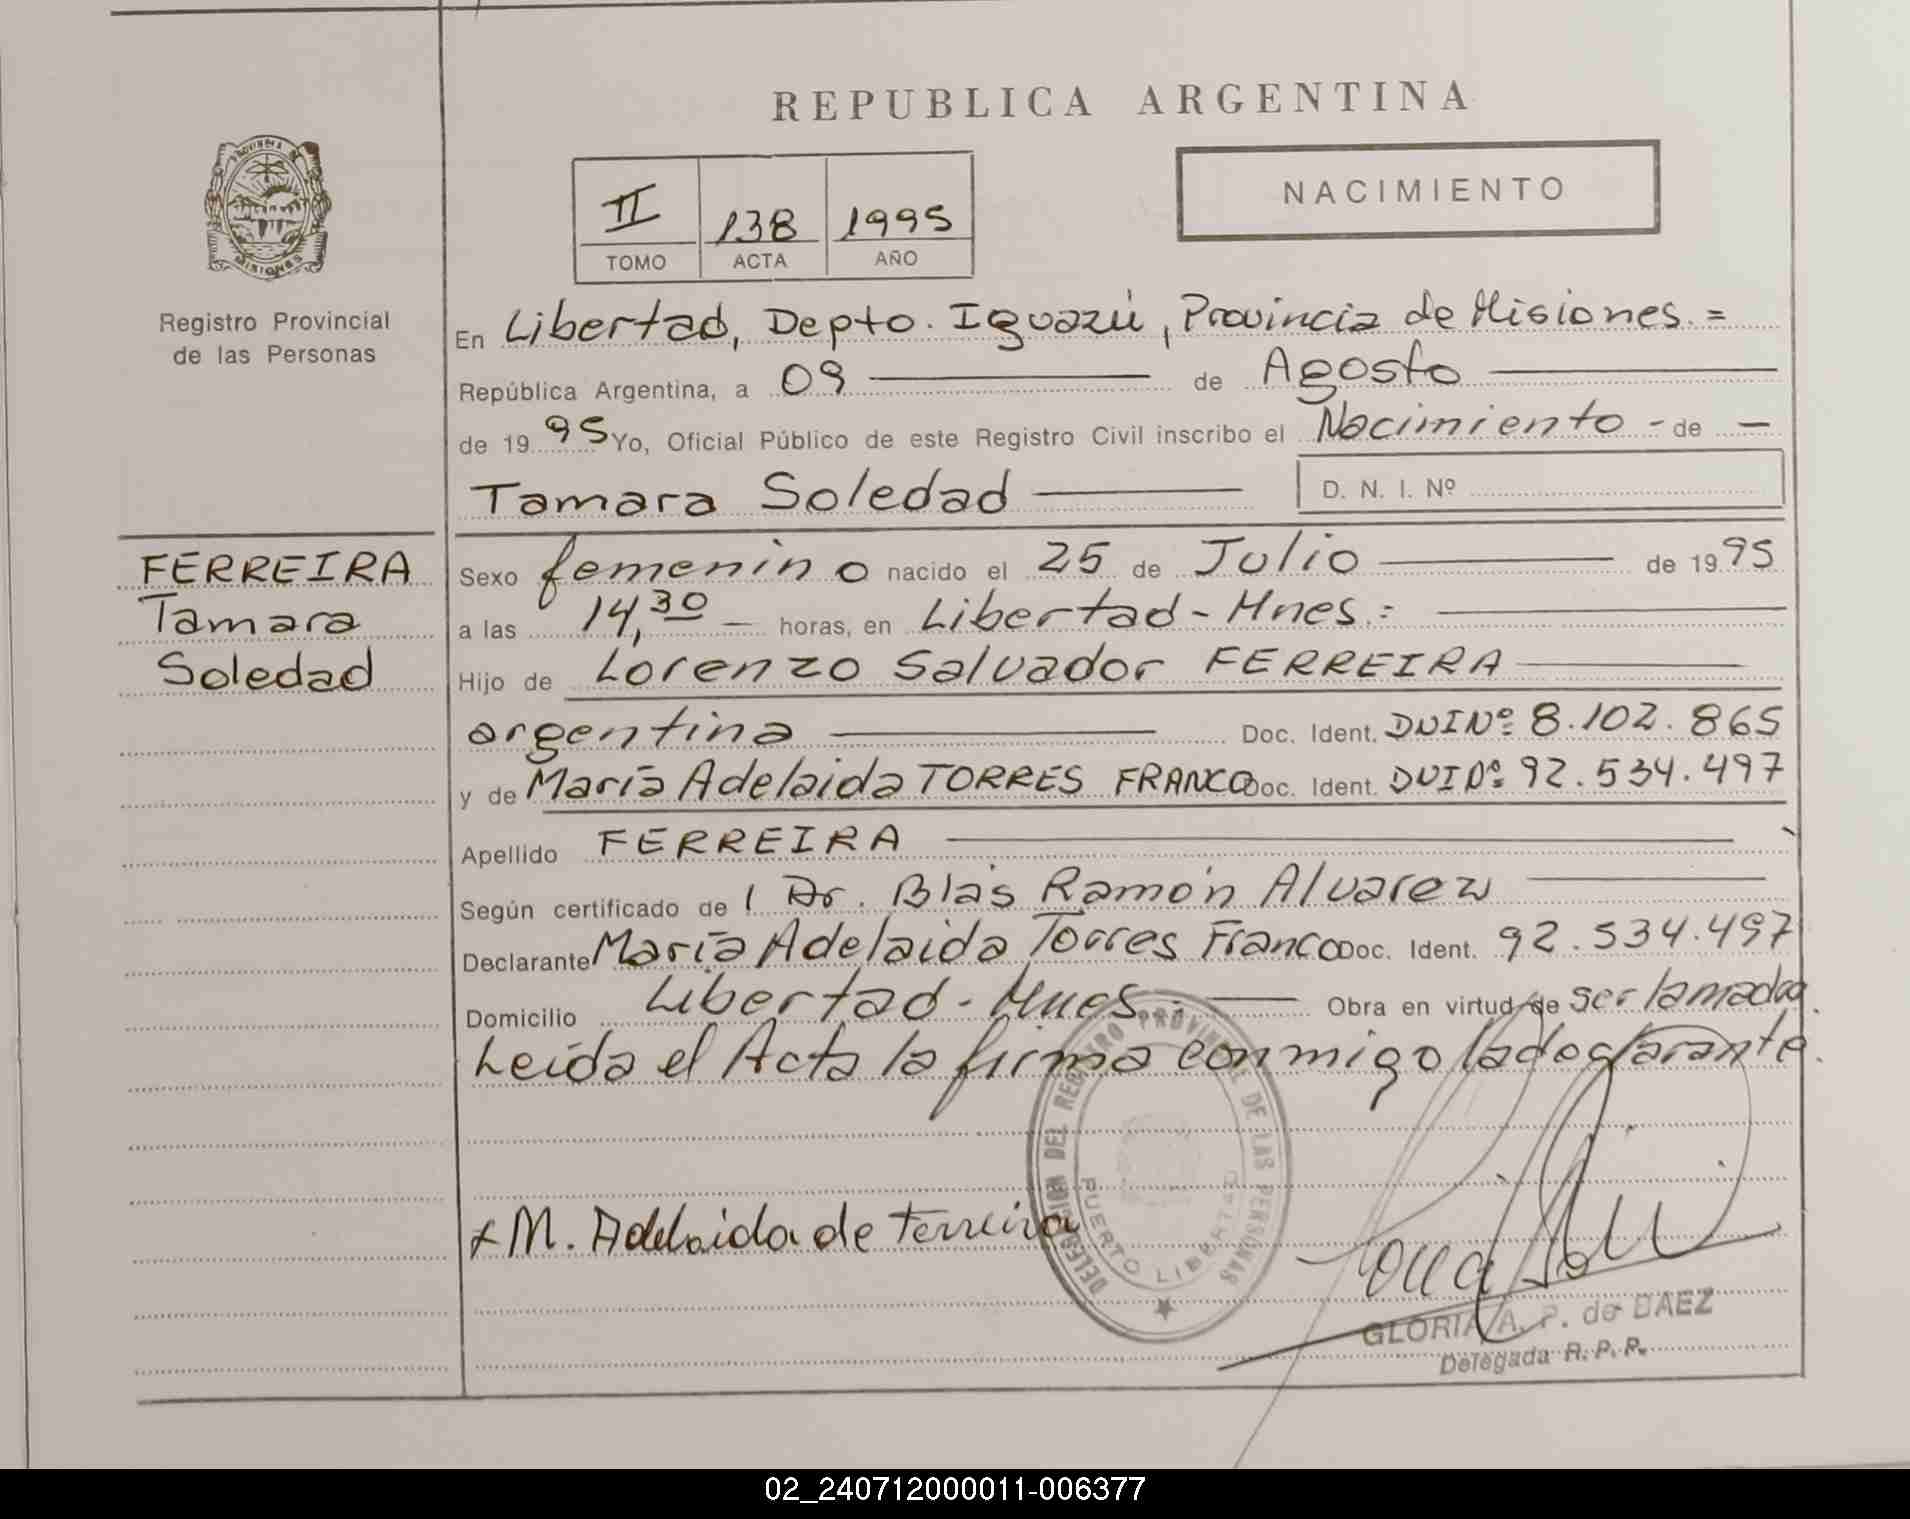 REPUBLICA ARGENTINA
PROVINCIA DE
MISIONES
Registro Provincial
de las Personas
II 138 1995
TOMO ACTA AÑO
NACIMIENTO
En Libertad, Depto. Iguazú, Provincia de Misiones.=
República Argentina, a 09 de Agosto
de 1995 Yo, Oficial Público de este Registro Civil inscribo el Nacimiento - de -
Tamara Soledad D. N. I. Nº
FERREIRA
Tamara
Soledad
Sexo femenino nacido el 25 de Julio de 1995
a las 14,30 — horas, en Libertad - Mnes.=
Hijo de Lorenzo Salvador FERREIRA
argentina Doc. Ident. DNI Nº 8.102.865
y de María Adelaida TORRES FRANCO Doc. Ident. DNI Nº 92.534.497
Apellido FERREIRA
Según certificado de l Dr. Blas Ramón Alvarez
Declarante María Adelaida Torres Franco Doc. Ident. 92.534.497
Domicilio Libertad - Mnes. Obra en virtud de ser la madre.
Leída el Acta la firma conmigo la declarante.
DELEGACION DEL REGISTRO PROVINCIAL DE LAS PERSONAS
PUERTO LIBERTAD
x M. Adelaida de Ferreira
GLORIA A. P. de BAEZ
Delegada R. P. P.
02_240712000011-006377